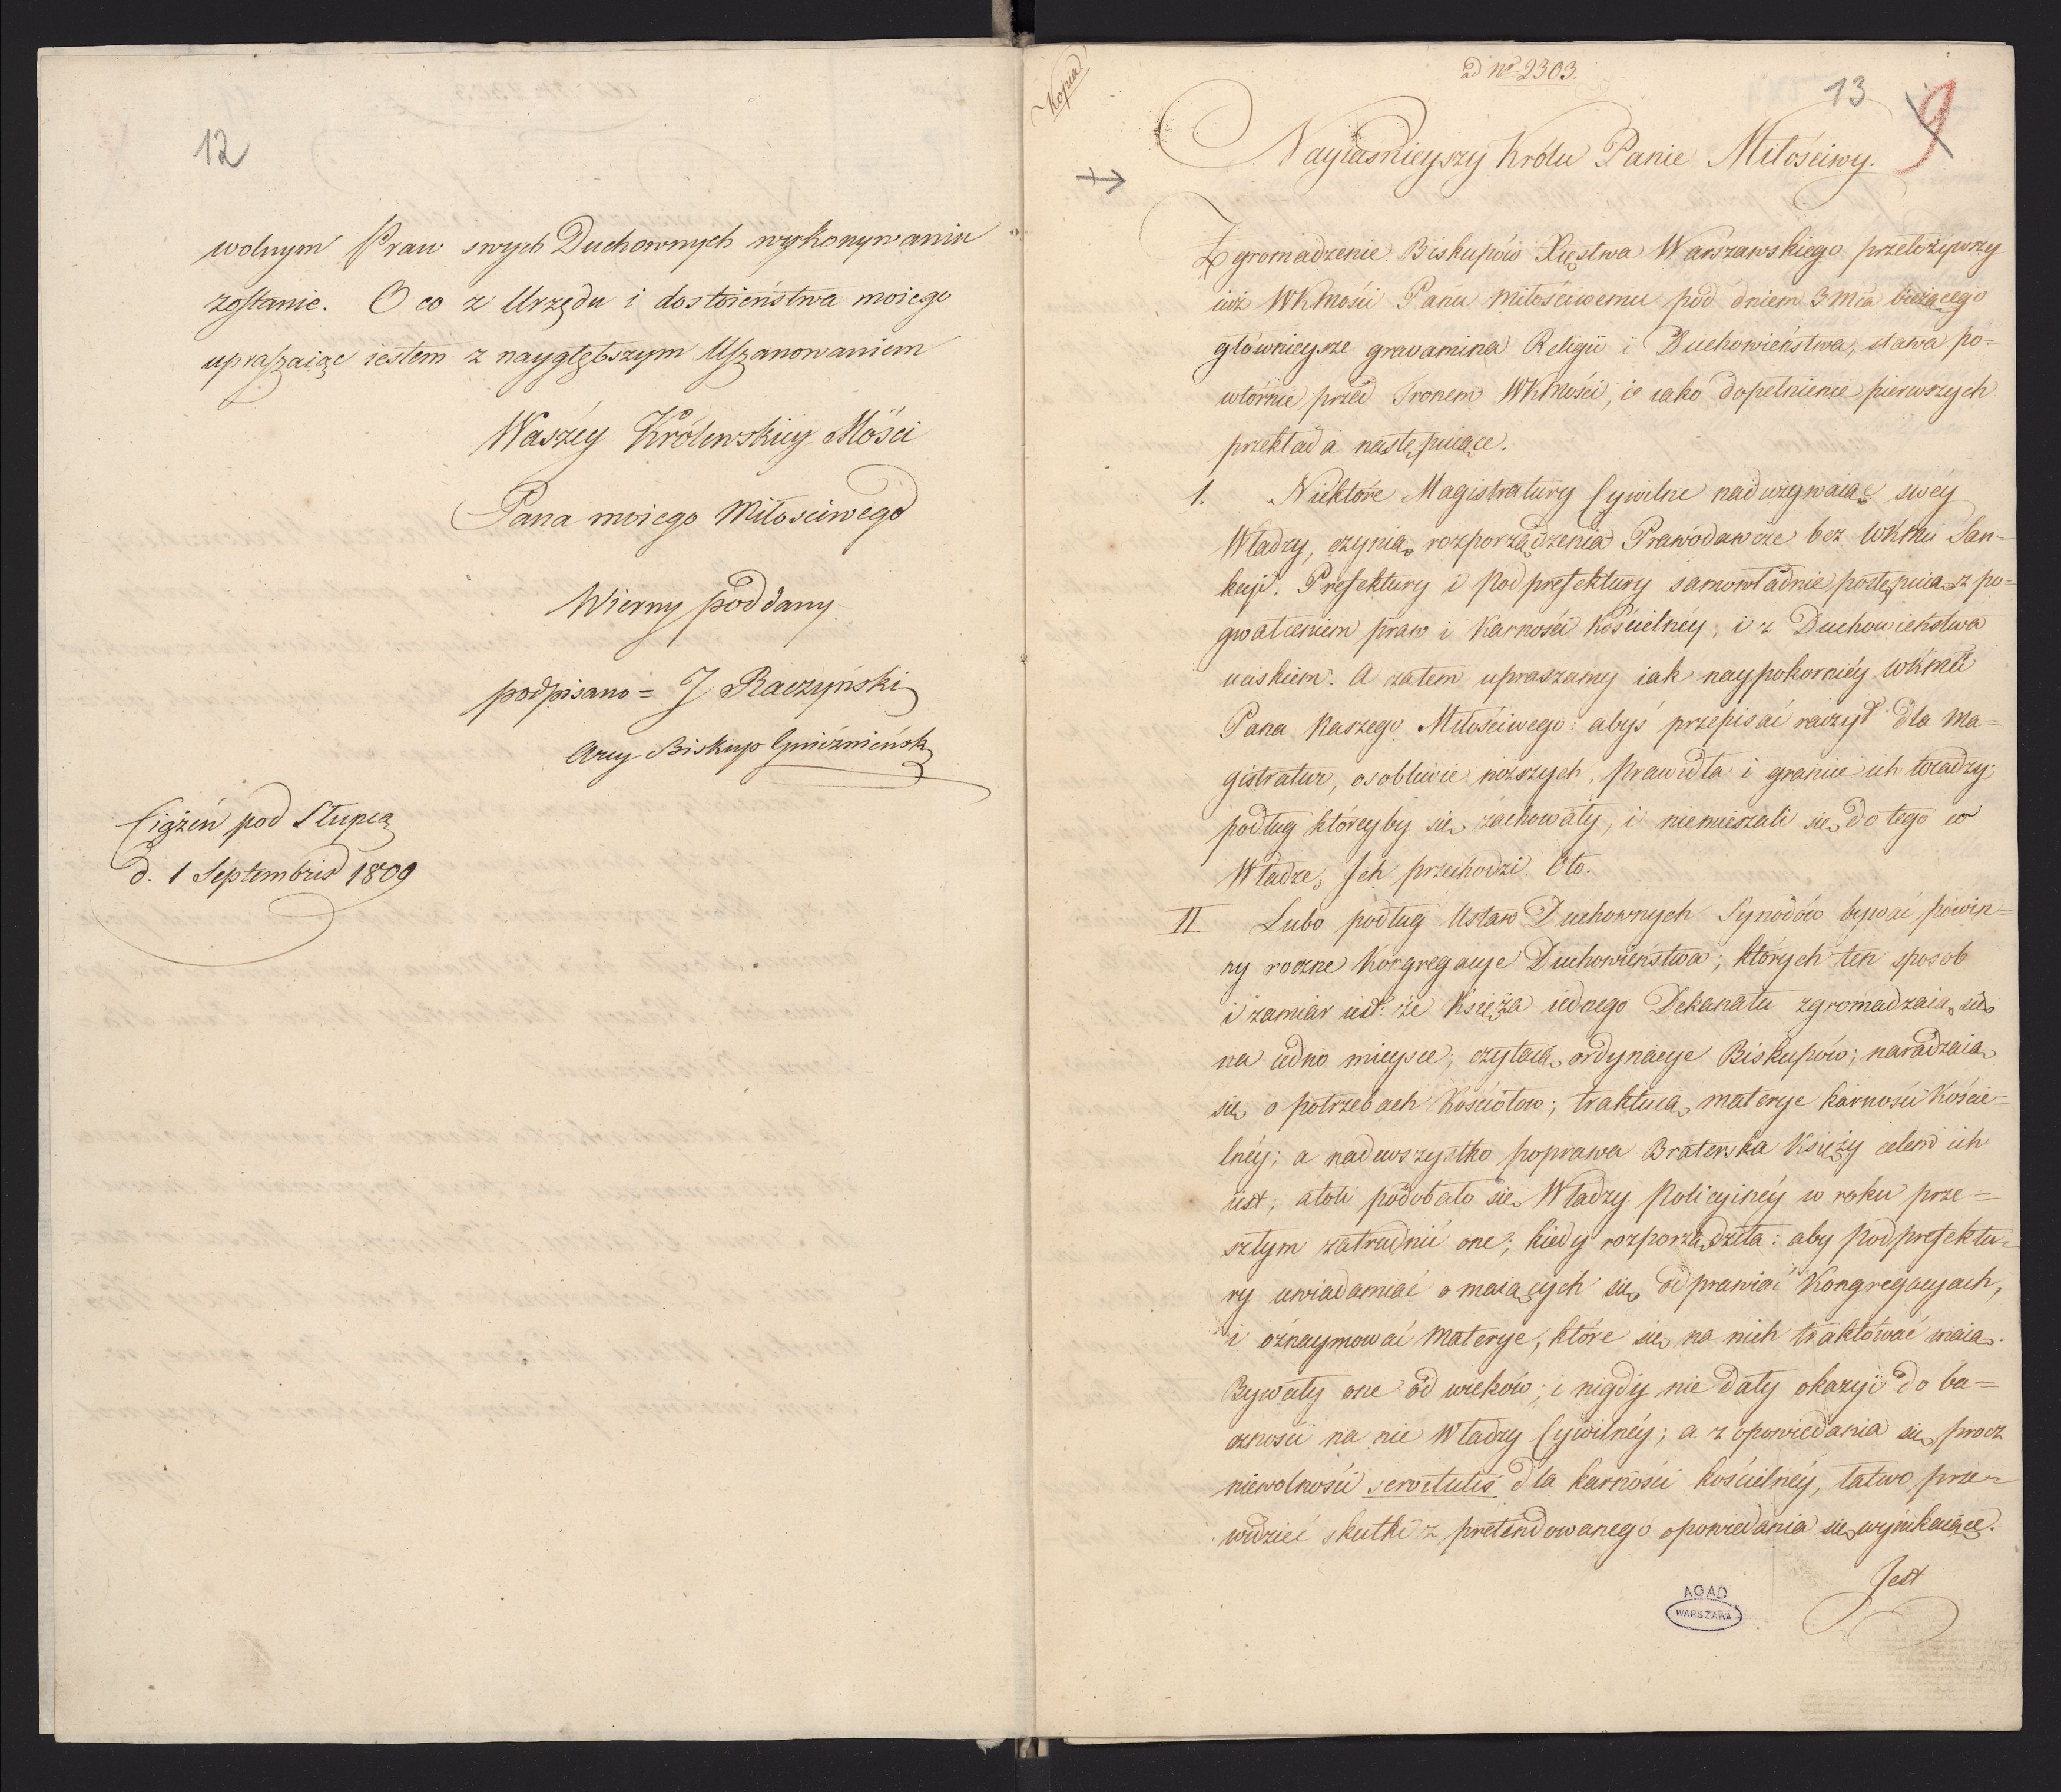 12
wolnym Praw swych Duchownych wykonywaniu
zostanie. O co z Urzędu i dostoieństwa moiego
upraszaiąc iestem z naygłębszym Uszanowaniem
Waszéy Królewskiey Mości
Pana moiego Miłosciwego
Wierny poddany
podpisano = J Raczyński
Arcy-Biskup Gnieźnieński
Ciążeń pod Słupcą
d. 1 Septembris 1809
Kopia
ad Nr 2303.
13
9
Nayiaśnieyszy Królu Panie Miłościwy.
Zgromadzenie Biskupów Xięstwa Warszawskiego przełożywszy
iuż WKMości Panu Miłościwemu pod dniem 3 Mca bieżącego
główniejsze gravamina Religii i Duchowieństwa, stawa po=
wtórnie przed Tronem WKMości, i iako dopełnienie pierwszych
przekłada następuiące.
1. Niektóre Magistratury Cywilne nadużywaiąc swéy
Władzy, czynią rozporządzenia Prawodawcze bez WKMci San=
kcyi. Prefektury i Podprefektury samowładnie postępuią z po=
gwałceniem praw i Karności Kościelnéy, i z Duchowieństwa
uciskiem. A zatem upraszamy iak naypokorniéy WKMci
Pana Naszego Miłościwego: abyś przepisać raczył dla Ma=
gistratur, osobliwie niższych, prawidła i granice ich władzy;
podług któreyby się zachowały, i niemieszali się do tego co
Władzę Ich przechodzi. Oto.
II Lubo podług Ustaw Duchownych Synodów bywać powin=
ny roczne Kongregacye Duchowieństwa; których ten sposob
i zamiar iest: że Księża iednego Dekanatu zgromadzaią się
na iedno mieysce; czytaią ordynacye Biskupów; naradzaią
się o potrzebach Kościołow; traktuią materye karności Koście=
lnéy; a nadewszystko poprawa Braterska Księży celem ich
iest; atoli podobało się Władzy Policyinéy w roku prze=
szłym zatrudnić one; kiedy rozporządziła: aby Podprefektu=
ry uwiadamiać o maiących się odprawiać Kongregacyach,
i oznaymować Materye, które się na nich traktować maią.
Bywały one od wieków; i nigdy nie dały okazyi do ba=
czności na nie Władzy Cywilnéy; a z opowiedania się procz
niewolności servitutis dla karności kościelnéy, łatwo prze=
widzieć skutki z pretendowanego opowiedania się wynikaiące.
Jest
AGAD
WARSZAWA